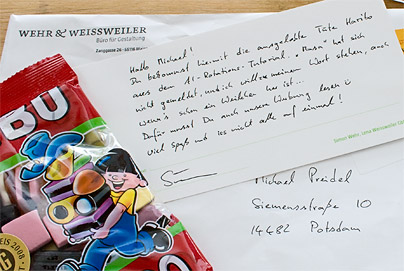 WEHR & WEISSWEILER
Büro für Gestaltung
Hallo Michael!
Du bekommst hiermit die ausgelobte Tüte Haribo
aus dem AI-Rotations-Tutorial. "Masn" hat sich
nicht gemeldet, und ich will zu meinem Wort stehen, auch
wenn's schon ein Weilchen her ist...
Dafür musst Du auch unsere Werbung lesen
Viel Spaß und iss nicht alle auf einmal!
Simon Wehr
Michael Preidel
Siemensstraße 10
14482 Potsdam
BU
PREIS 2008